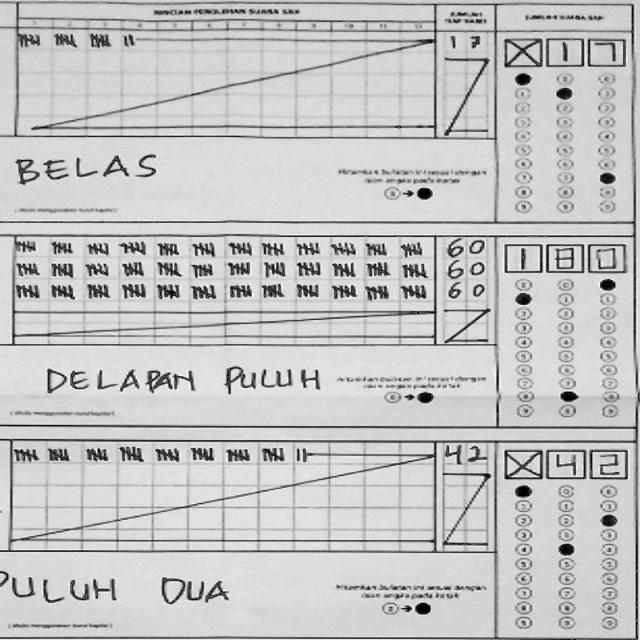 RINCIAN PEROLEHAN SUARA SAH
JUMLAH SUARA SAH
17
X 1 7
BELAS
Hitamkan bulatan ini sesuai dengan
isian angka pada kotak
(ditulis menggunakan huruf kapital)
60
60
60
1 8 0
DELAPAN PULUH
Hitamkan bulatan ini sesuai dengan
isian angka pada kotak
(ditulis menggunakan huruf kapital)
42
X 4 2
PULUH DUA
Hitamkan bulatan ini sesuai dengan
isian angka pada kotak
(ditulis menggunakan huruf kapital)